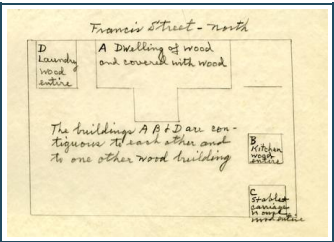 Francis Street - north
D
Laundry
wood
entire
A Dwelling of wood
and covered with wood
The buildings A B & D are con-
tiguous to each other and
to one other wood building
B
Kitchen
wood
entire
C
Stable &
carriage
wood entire